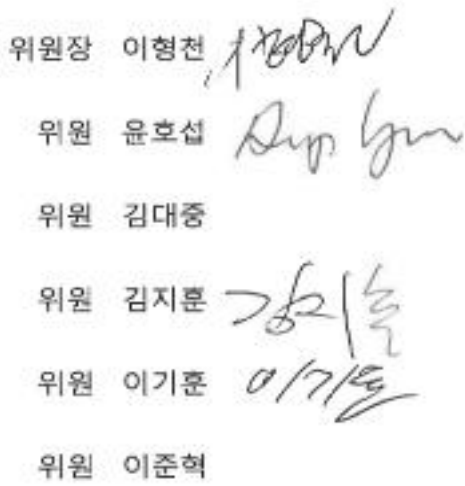 위원장 이형천
위원 윤호섭
위원 김대중
위원 김지훈 김지훈
위원 이기훈 이기훈
위원 이준혁